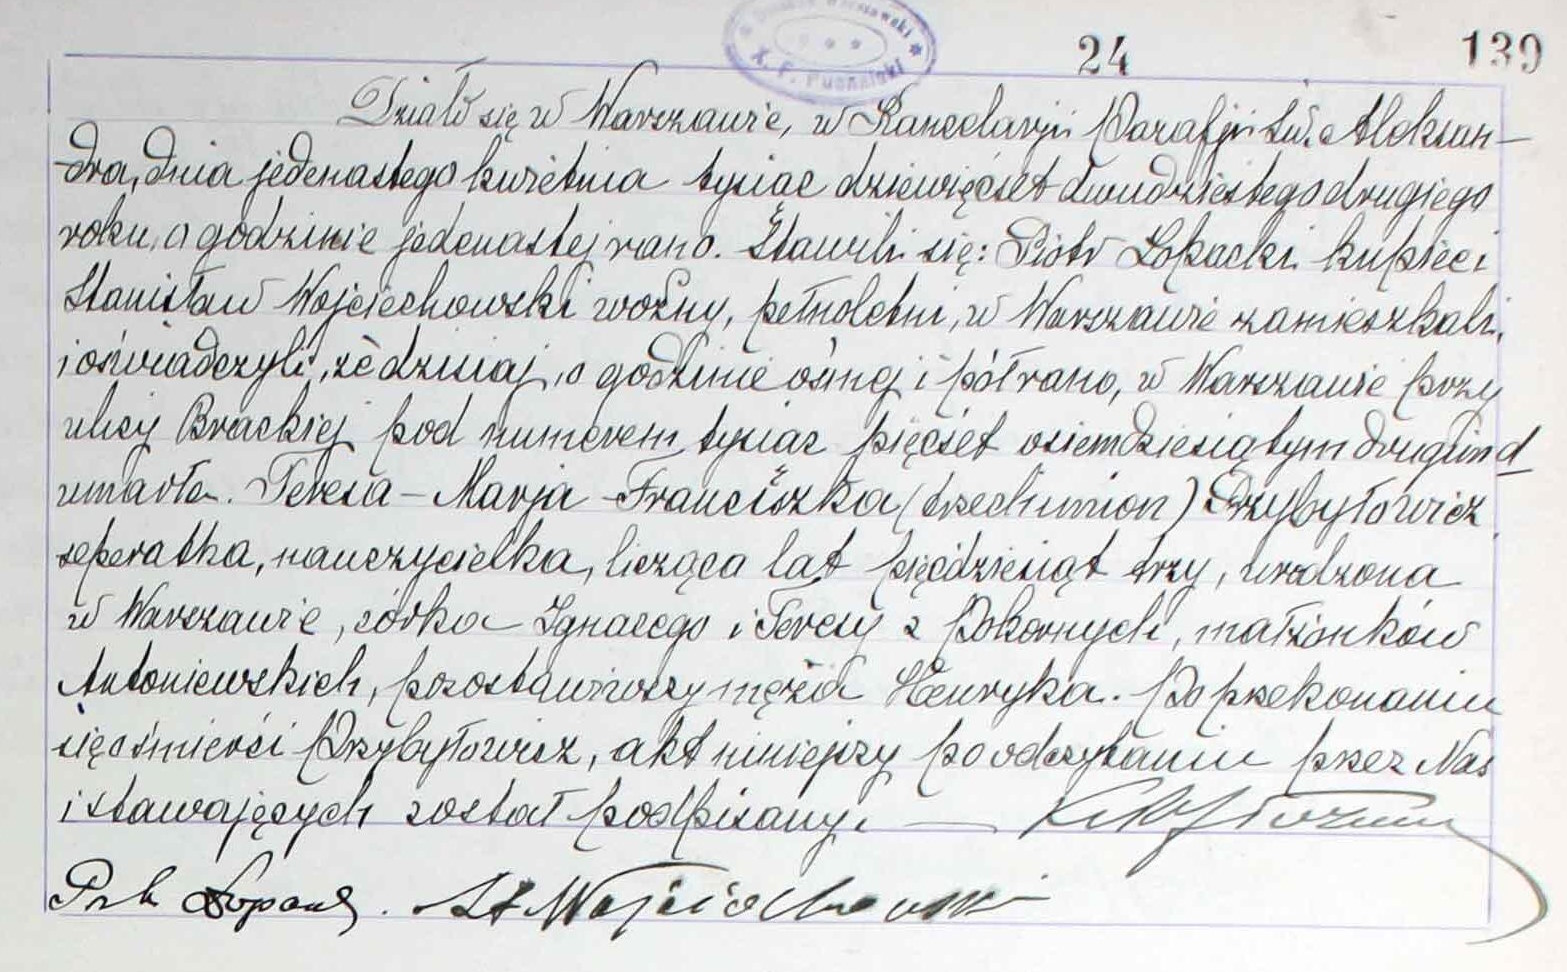 24 139
X. F. Puchalski
Działo się w Warszawie, w Kancelarji Parafji Św. Aleksan-
dra, dnia jedenastego kwietnia tysiąc dziewięćset dwudziestego drugiego
roku, o godzinie jedenastej rano. Stawili się: Piotr Łopacki kupiec i
Stanisław Wojciechowski woźny, pełnoletni, w Warszawie zamieszkali,
i oświadczyli, że dzisiaj, o godzinie ósmej i pół rano, w Warszawie przy
ulicy Brackiej pod numerem tysiąc pięćset osiemdziesiątym drugim d
umarła. Teresa-Marja-Franciszka (trzech imion) Przybyłowicz
seperatka, nauczycielka, licząca lat pięćdziesiąt trzy, urodzona
w Warszawie, córka Ignacego i Teresy z Pokornych, małżonków
Antoniewskich, pozostawiwszy męża Henryka. Po przekonaniu
się o śmierci Przybyłowicz, akt niniejszy po odczytaniu przez Nas
i stawających został podpisany.
St Wojciechowski